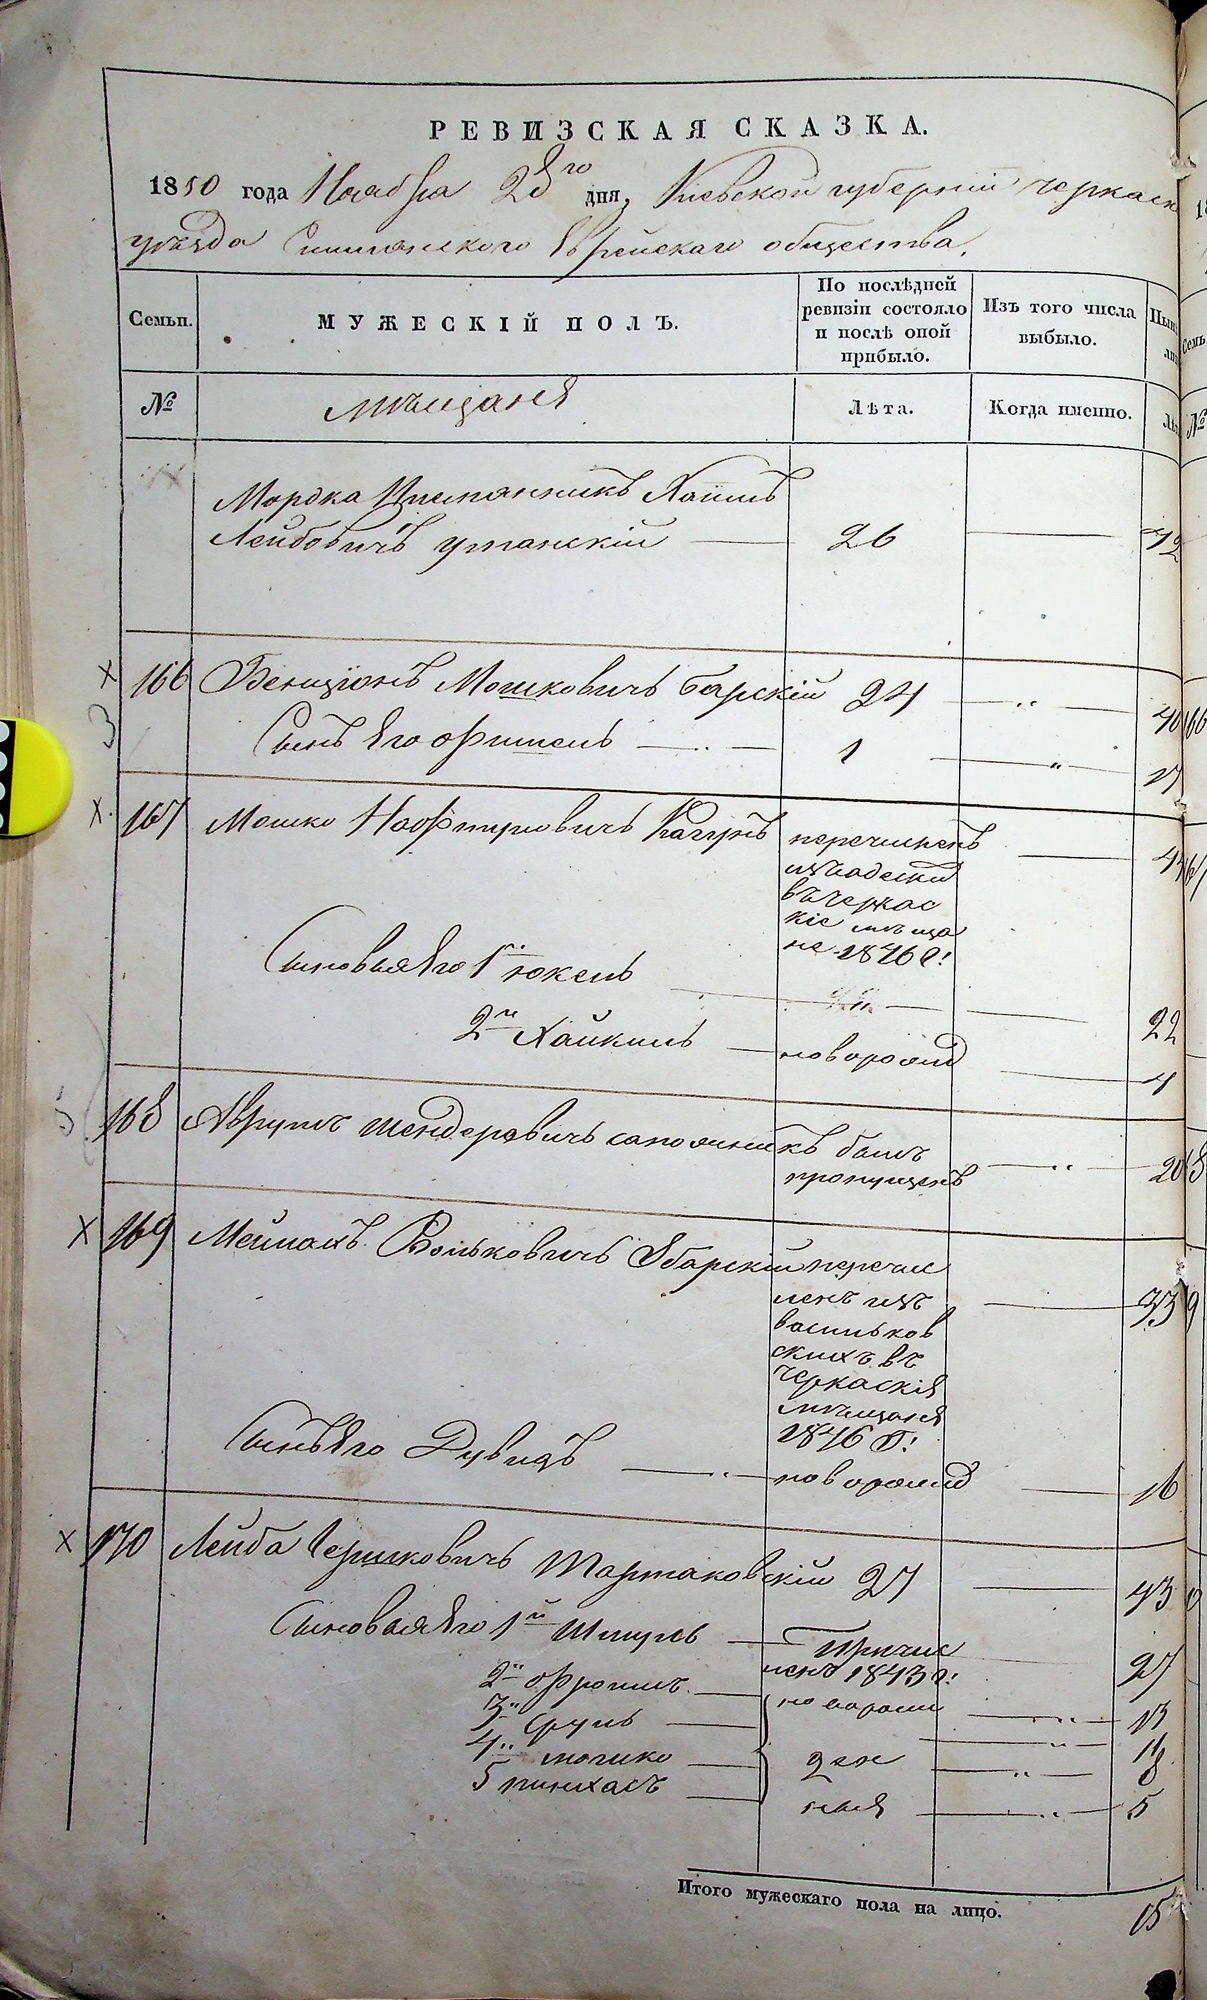 РЕВИЗСКАЯ СКАЗКА.
1850 года Ноября 28го дня, Киевской губерніи черкаск
уѣзда Еврейскаго общества.
Семьи.
МУЖЕСКІЙ ПОЛЪ.
По послѣдней ревизіи состояло и послѣ оной прибыло.
Изъ того числа выбыло.
№
мѣщаня
Лѣта.
Когда именно.
Мордка Племянникъ Хаимъ
Лейбовичъ уманскій 26 42
166 Бенціонъ Мошковичъ барскій 24 „ 40
Сынъ Его Фишель 1 „ 17
167 Мошко Кагунъ перечисленъ 44
въ черкас
кіе мѣща
не 1846 г:
Сыновья Его 1й юкель 22
2й Хаикель новорожд 4
168 Аврумъ Шендеровичъ сапожникъ былъ „ 20
пропущенъ
169 Вольковичъ Збарскій перечис
ленъ изъ 33
васильков
скихъ въ
черкаскія
мѣщаня
1846 г:
Сынъ Его Дувидъ новорожд 16
170 Лейба Гершковичъ Тартаковскій 27 43
Сыновья Его 1й Шмуль причис 27
ленъ 1843 г:
2й Фроимъ новорож 13
3й Сруль
4й мошко 8
5 пинхасъ ныя 5
Итого мужескаго пола на лицо. 15